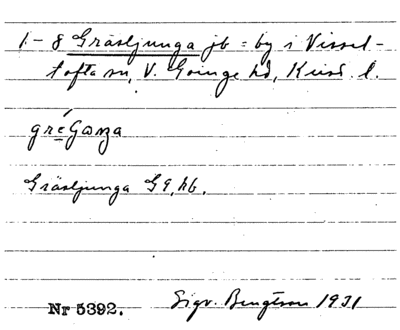 1-8 Gräsljunga jb = by i Vissel-
tofta sn, V. Göinge hd, Krist. l.
Gräsljunga G9, hb.
Nr 5392. Sigv. Bengtson 1931